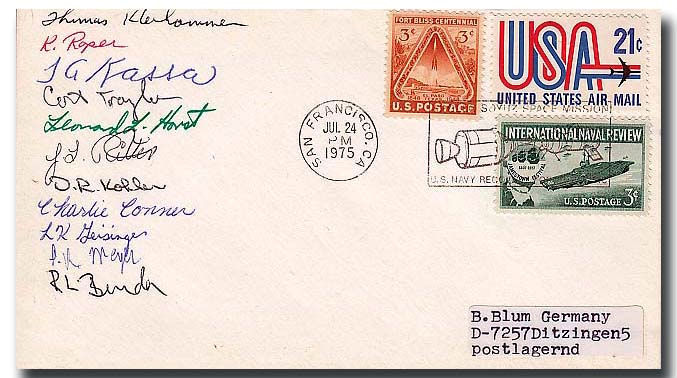 Thomas Klerkammer
R. Roper
J A Kassa
Cort Traylor
Leonard L. Horst
J L Ritter
D.R. Kohler
Charlie Conner
LK Geisinger
Meyer
R L Bender
FORT BLISS CENTENNIAL
3¢ 3¢
EL PASO
1848 1948
U.S. POSTAGE
USA 21¢
UNITED STATES AIR MAIL
SAN FRANCISCO, CA
JUL 24
PM
1975
SOYUZ SPACE MISSION
U.S. NAVY RECO
INTERNATIONAL NAVAL REVIEW
JAMESTOWN FESTIVAL
1607 1957
U.S. POSTAGE 3¢
B.Blum Germany
D-7257Ditzingen5
postlagernd